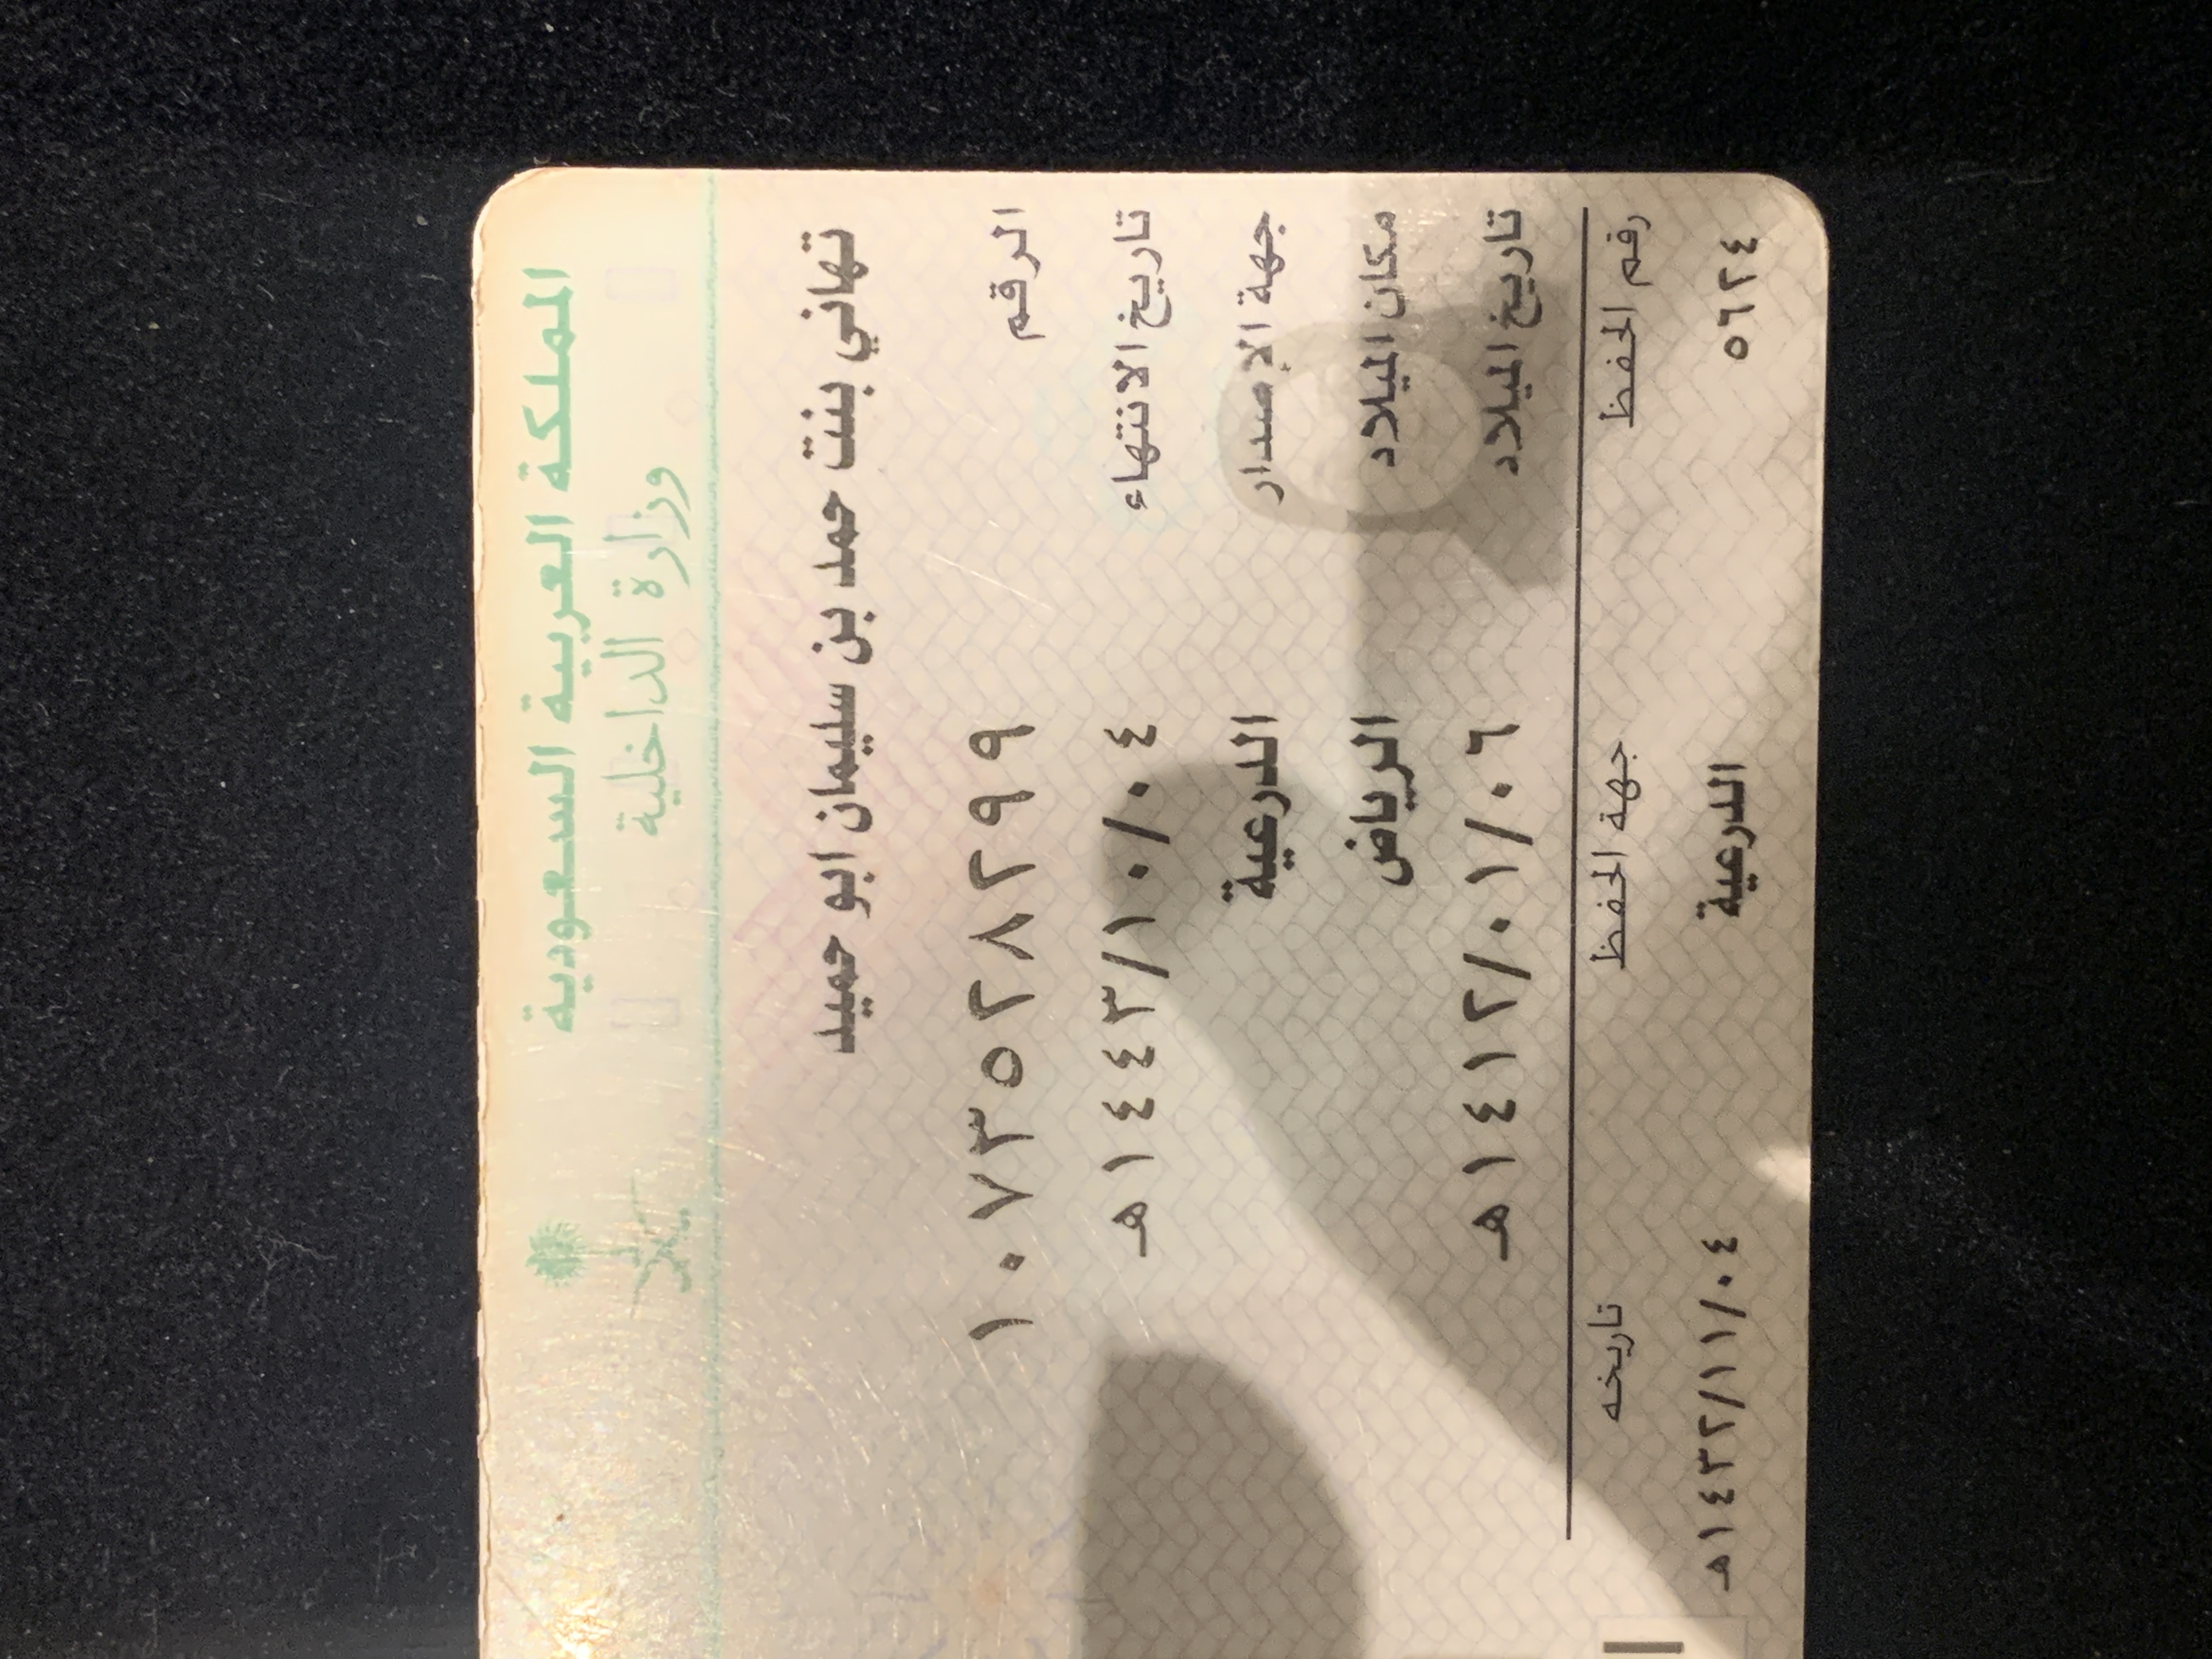 المملكة العربية السعودية
وزارة الداخلية
تهاني بنت حمد بن سليمان ابو حميد
الرقم ١٠٧٣٥٢٨٢٩٩
تاريخ الانتهاء ١٤٤٣/١٠/٠٤ هـ
جهة الإصدار الدرعية
مكان الميلاد الرياض
تاريخ الميلاد ١٤١٢/٠١/٠٦ هـ
رقم الحفظ جهة الحفظ تاريخه
٥٦٢٤ الدرعية ١٤٣٢/١١/٠٤ هـ